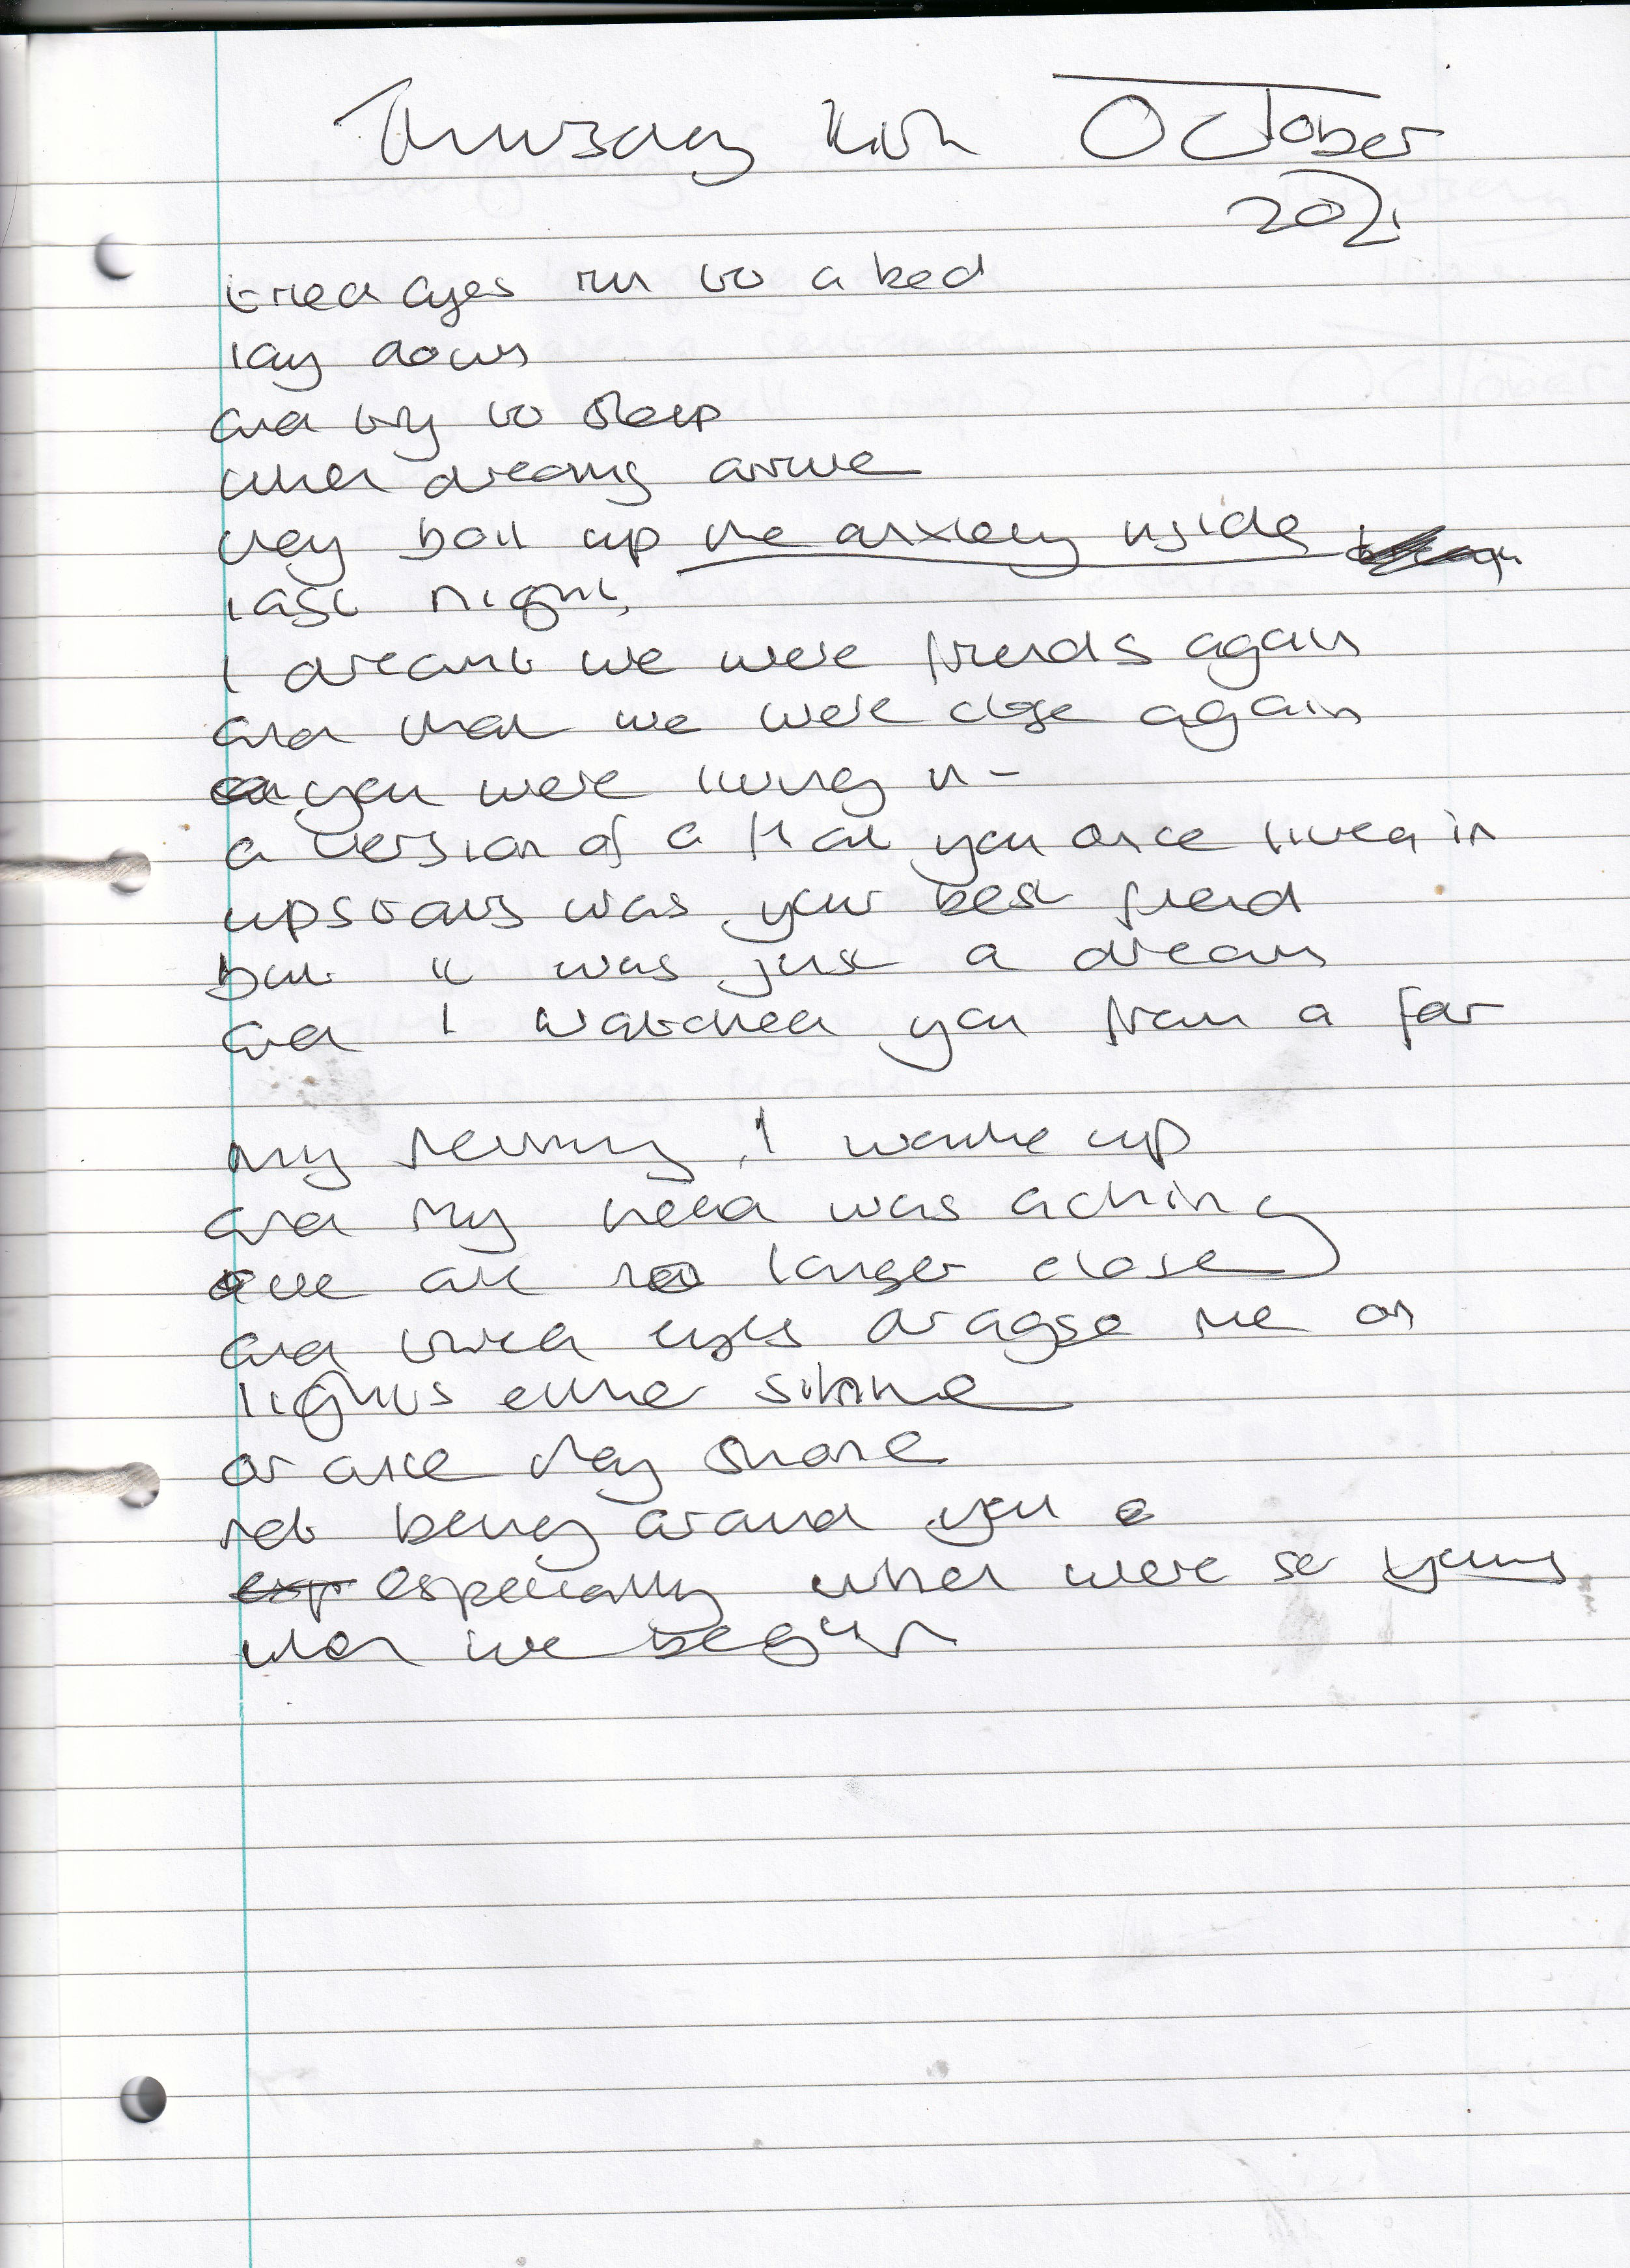 Thursday October
2021
tired eyes run to a bed
lay down
and try to sleep
when dreams arrive
they boil up the anxiety inside
last night,
I dreamt we were friends again
and that we were close again
you were living in -
a version of a flat you once lived in
upstairs was your best friend
but it was just a dream
and I watched you from a far
my I wake up
and my head was aching
we are no longer close
and tired eyes dragged me on
lights either shine
or once they shone
not being around you
especially when were so young
when we begun